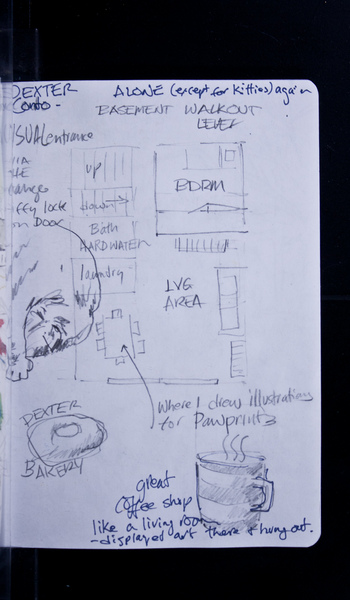 DEXTER
Condo -
ALONE (except for kitties) again
BASEMENT WALKOUT
LEVEL
USUAL entrance
VIA
THE
iffy lock
on Door
up
down
Bath
HARD WATER
laundry
BDRM
LVG
AREA
Where I drew illustrations
for Pawprints
DEXTER
BAKERY
great
Coffee shop
like a living room
-displayed art there & hung out.